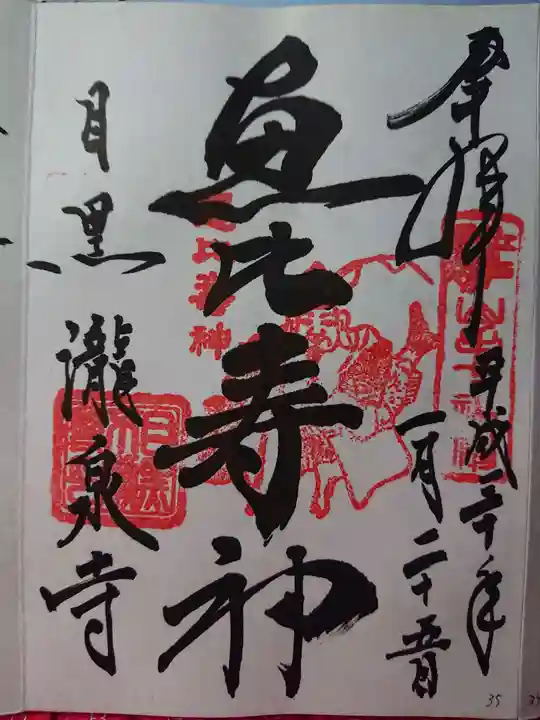 奉拝
平成三十年
一月二十五日
恵比寿神
恵比寿神
目黒 瀧泉寺
35